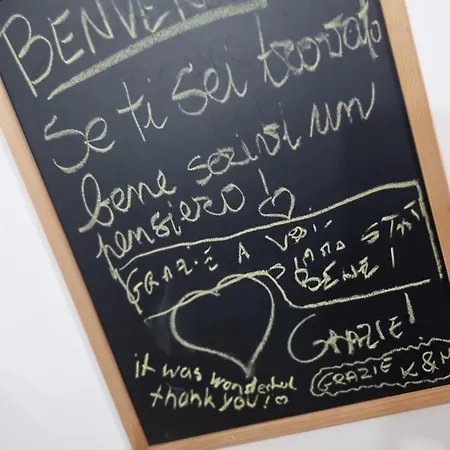 BENVEN
Se ti sei trovato
bene scrivi un
pensiero!
GRAZIE A VOI
SIAMO STATI
BENE!
GRAZIE!
it was wonderful
thank you!
GRAZIE K&M